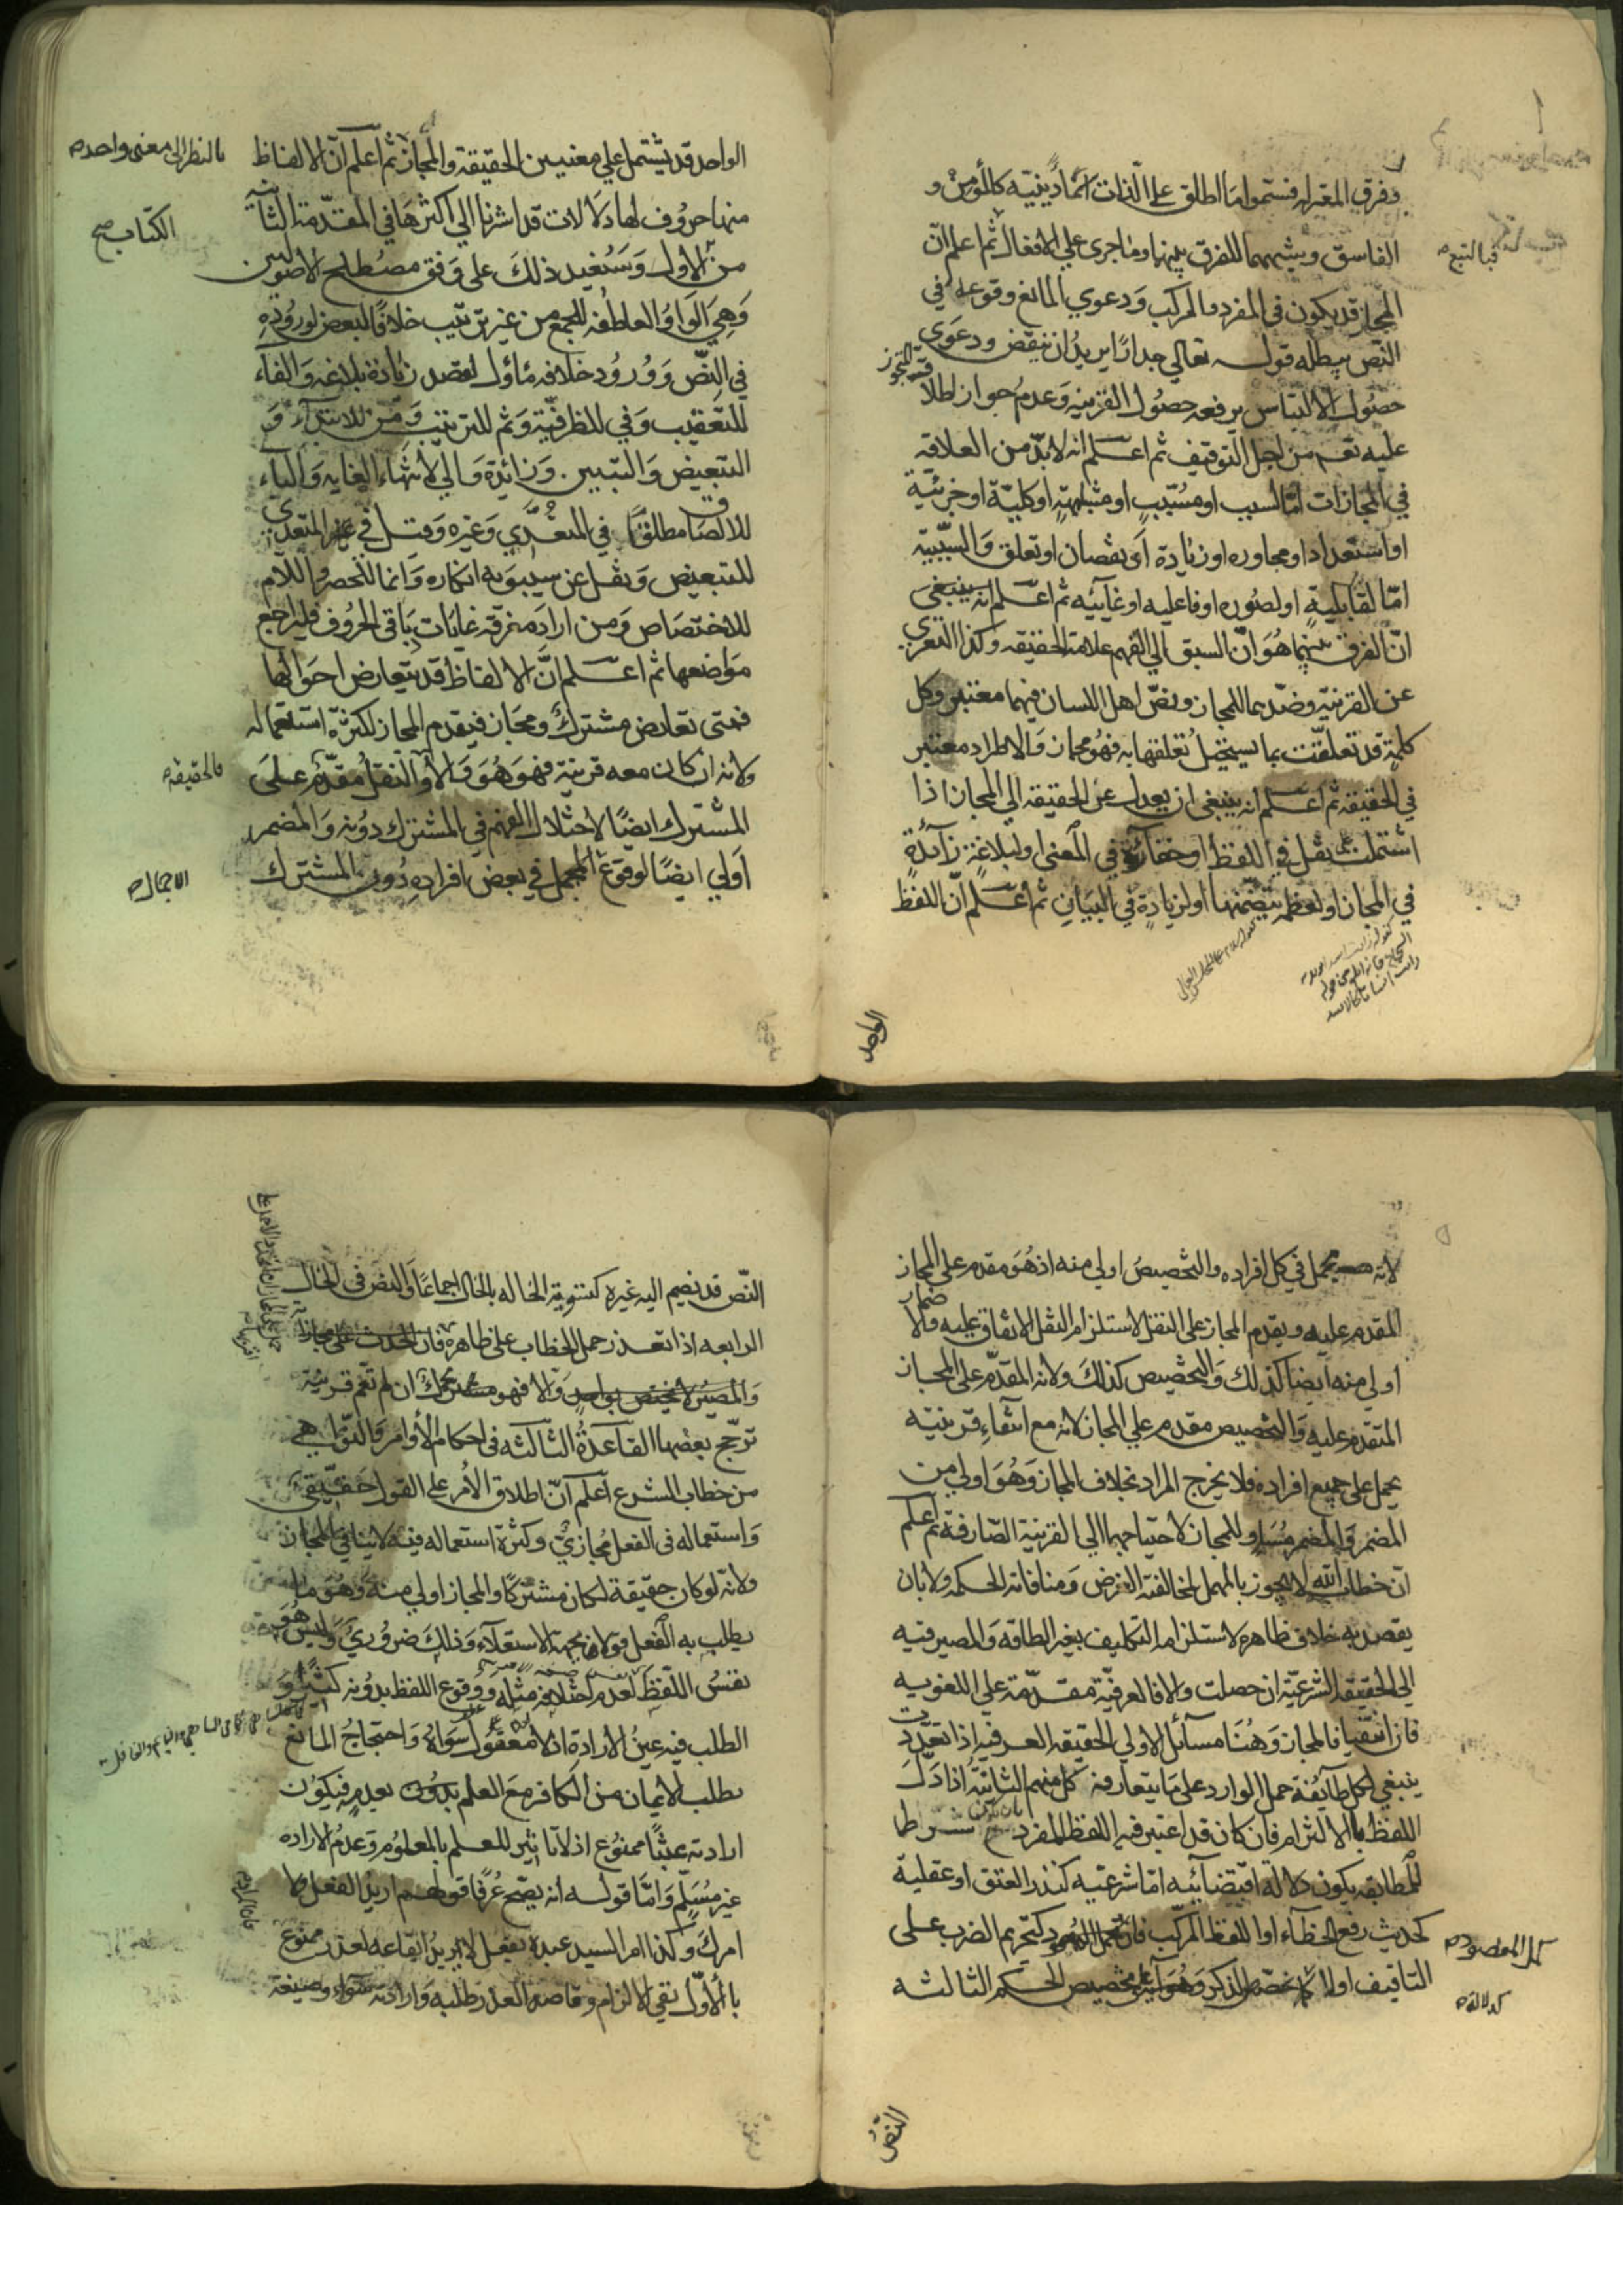 وفرق المعتزله فسموا ما اطلق على الذات اسماء دينيه كالمؤمن و
الفاسق وبينهما للفرق بينها وما جرى على الافعال ثم اعلم ان
المجاز قد يكون في المفرد والمركب ودعوي المانع وقوعه في
النص يبطله قوله تعالي جدارا يريد ان ينقض ودعوى
حصول الالتباس يرفعه حصول القرينه وعدم جواز اطلا
عليه تعـ من اجل التوقيف ثم اعلم انه لابد من العلاقه
في المجازات اما لسبب او مسبب او مشابهة او كلية او جزئية
او استعداد او مجاوره او زيادة او نقصان او تعلق والسببية
اما لقابلية او لصوره او فاعليه او غائيه ثم اعلم انه ينبغي
ان الفرق بينهما هو ان السبق الي الفهم علامة الحقيقه وكذا التعري
عن القرينه وضدهما للمجاز ونص اهل اللسان فيهما معتبر وكل
كلمة قد تعلقت بما يستحيل تعلقها به فهو مجاز والاطراد معتبر
في الحقيقه ثم اعلم انه ينبغي ان يعدل عن الحقيقه الي المجاز اذا
اشتملت على ثقل في اللفظ او حقارة في المعنى او لبلاغة زآئدة
في المجاز او لعظمه يتضمنها او لزيادة في البيان ثم اعلم ان اللفظ
الواحد
الواحد قد يشتمل علي معنيين الحقيقة والمجاز ثم اعلم ان الالفاظ
بالنظر الى معنى واحد
منها حروف لها دلالات قد اشرنا الي اكثرها في المقدمة الثانية
الكتاب صح
من الاول وسنفيد ذلك على وفق مصطلح الاصوليين
وهي الواو العاطفه للجمع من غير ترتيب خلافا لبعض لوروده
في النص وورود خلافه ماؤل لقصد زيادة بلاغه والفاء
للتعقيب وفي للظرفية وثم للترتيب ومن للابتدآء و
التبعيض والتبيين وزائدة والي لانتهاء الغايه والباء
للالصاق مطلقا في المتعدي وغيره وقيل في غير المتعدي
للتبعيض ونقل عن سيبويه انكاره وانما للحصر واللام
للاختصاص ومن اراد معرفه غايات باقي الحروف فليراجع
مواضعها ثم اعلم ان الالفاظ قد يتعارض احوالها
فمتى تعارض مشترك ومجاز فيقدم المجاز لكثرة استعماله
ولانه ان كان معه قرينة فهو هو والا والنقل مقدم على
بالحقيقه
المشترك ايضا لاختلال الفهم في المشترك دونه والمضمر
اولي ايضا لوقوع المجمل في بعض افراده دون المشترك
الاجمال
لانه مجمل في كل افراده والتخصيص اولي منه اذ هو مقدم على المجاز
المقدم عليه ويقدم المجاز على النقل لاستلزام النقل الاتفاق عليه والاضمار
اولي منه ايضا كذلك والتخصيص كذلك ولانه المقدم على المجاز
المتقدم عليه والتخصيص مقدم علي المجاز لانه مع انتفاء قرينيه
يحمل على جميع افراده فلا يخرج المراد بخلاف المجاز وهو اولي من
المضمر والمضمر مساو للمجاز لاحتياجهما الي القرينة الصارفة ثم اعلم
ان خطاب الله لا يجوز بالمهمل لمخالفته الغرض ومنافاته الحكمه ولا بان
يقصد به خلاف ظاهره لاستلزامه التكليف بغير الطاقه والمصير فيه
الي الحقيقه الشرعية ان حصلت والا فالعرفية مقدمة علي اللغويه
فان انتفيا فالمجاز وهنا مسآئل الاولي الحقيقه العرفيه اذا تعددت
ينبغي لكل طآيفة حمل الوارد على ما يتعارفه كل منهم الثانية اذا دل
اللفظ بالالتزام فان كان قد اعتبر فيه اللفظ المفرد بان يكون شرطا
للمطابقه يكون دلالة اقتضائيه اما شرعيه كنذر العتق او عقلية
كحديث رفع الخطآء او اللفظ المركب فان كتحريم الضرب على
التافيف اولا
تخصيص الحكم الثالثه
كدلالة
النص
النص قد يضم اليه غيره كتسوية الخاله بالخال اجماعا والنص في الخال
الرابعه اذا تعذر حمل الخطاب على ظاهره
والا فهو ان لم تقم قرينة
ترجح بعضها القاعدة الثالثه في احكام الأوامر والنواهي
من خطاب الشرع اعلم ان اطلاق الأمر على القول حقيقي
واستعماله في الفعل مجازي وكثرة استعماله فيه لا ينافي المجاز
ولانه لو كان حقيقة لكان مشتركا والمجاز اولي منه وهو ما
يطلب به الفعل قولا بجهة الاستعلآء وذلك ضروري وليس هو
نفس اللفظ لعدم اختلافه مثله ووقوع اللفظ بدونه كثيرا و
الطلب فيه عين الارادة اذ لا معقول سواه واحتجاج المانع
بطلب الايمان من الكافر مع العلم بعدمه فيكون
ارادته عبثا ممنوع اذ لا تاثير للعلم بالمعلوم وعدم الاراده
غير مسلم واما قوله انه يصح عرفا قولهم اريد الفعل ولا
امرك وكذا امر السيد عبده بفعل لا يريد ايقاعه لعذر ممنوع
بالأول نفي الالزام وقاصد العذر طلبه وارادته سواء وصيغة